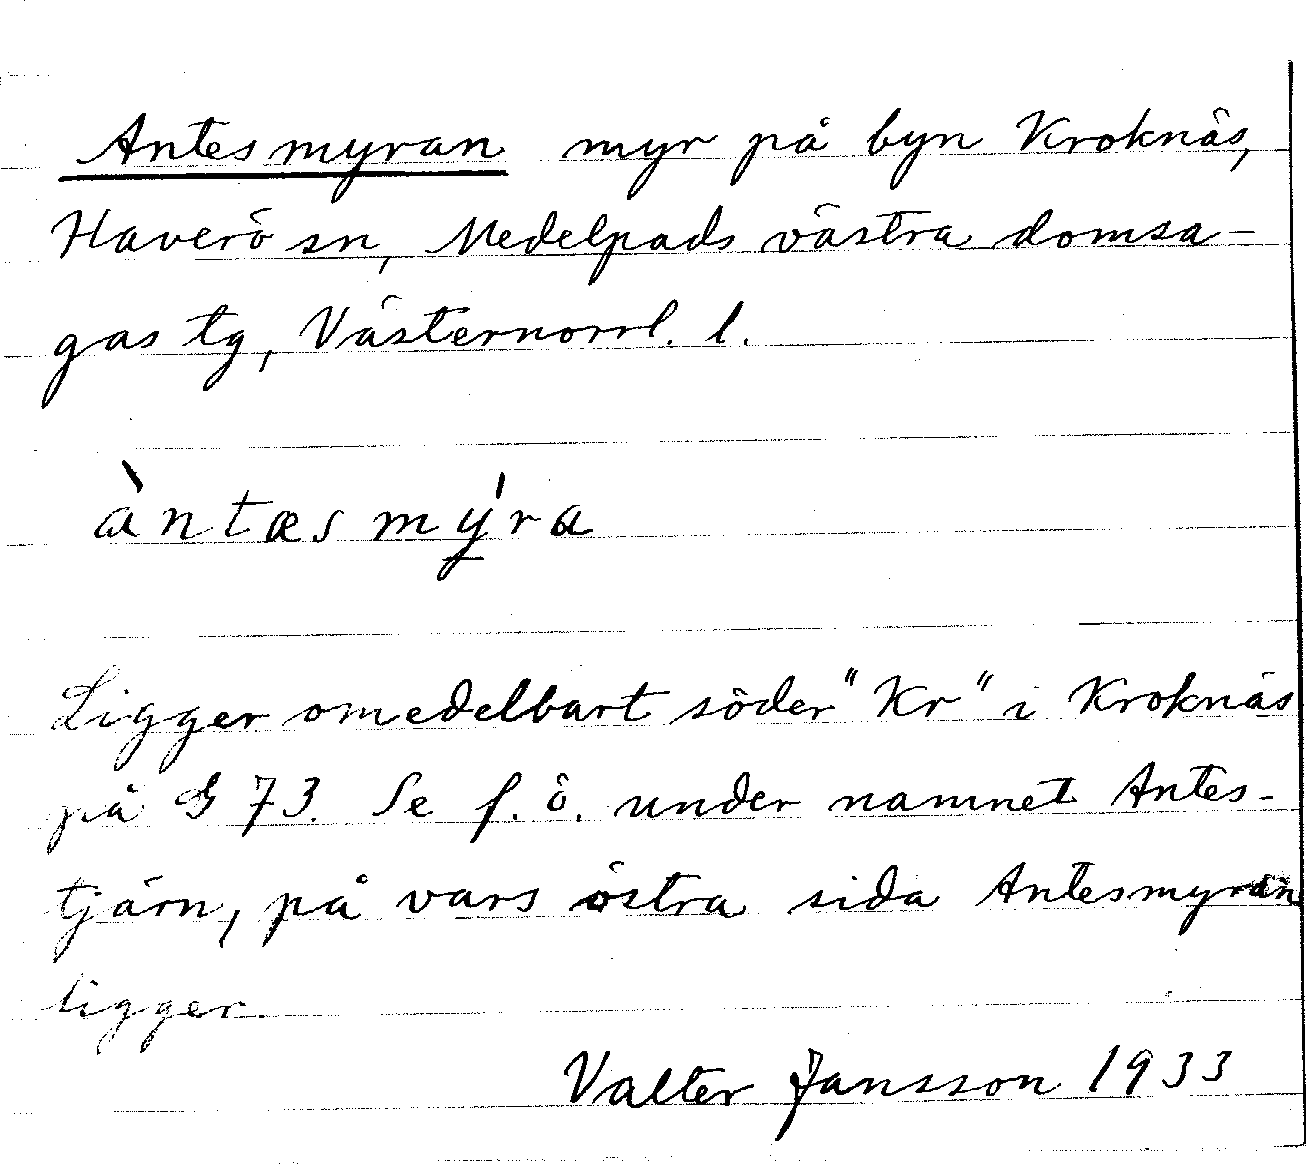 Antesmyran myr på byn Kroknäs,
Haverö sn, Medelpads västra domsa-
gas tg, Västernorrl. l.
àntæsmýra
Ligger omedelbart söder "Kr" i Kroknäs
på G 73. Se f. ö. under namnet Antes-
tjärn, på vars östra sida Antesmyran
ligger.
Valter Jansson 1933